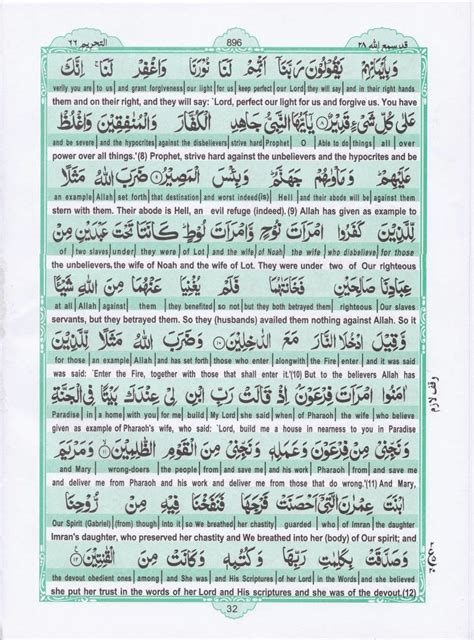 قد سمع الله ٢٨ 896 التحريم ٦٦
وَبِأَيْمَانِهِمْ يَقُولُونَ رَبَّنَآ أَتْمِمْ لَنَا نُورَنَا وَاغْفِرْ لَنَا إِنَّكَ
verily you are | to us | and grant forgiveness | our light | for us | keep perfect | our Lord | they will say | and in their right hands
them and on their right, and they will say: `Lord, perfect our light for us and forgive us. You have
عَلَىٰ كُلِّ شَيْءٍ قَدِيرٌ ۝ يَٰٓأَيُّهَا النَّبِيُّ جَاهِدِ الْكُفَّارَ وَالْمُنَٰفِقِينَ وَاغْلُظْ
and be severe | and the hypocrites | against the disbelievers | strive hard | Prophet | O | Able to do | things | all | over
power over all things.'(8) Prophet, strive hard against the unbelievers and the hypocrites and be
عَلَيْهِمْ وَمَأْوَٰهُمْ جَهَنَّمُ وَبِئْسَ الْمَصِيرُ ۝ ضَرَبَ اللَّهُ مَثَلًا
an example | Allah | set forth | that destination | and worst indeed(is) | Hell | and their abode will be | against them
stern with them. Their abode is Hell, an evil refuge (indeed).(9) Allah has given as example to
لِّلَّذِينَ كَفَرُوا امْرَأَتَ نُوحٍ وَامْرَأَتَ لُوطٍ كَانَتَا تَحْتَ عَبْدَيْنِ مِنْ
of | two slaves | under | they were | of Lot | and the wife | of Noah | the wife | who disbelieve | for those
the unbelievers, the wife of Noah and the wife of Lot. They were under two of Our righteous
عِبَادِنَا صَالِحَيْنِ فَخَانَتَاهُمَا فَلَمْ يُغْنِيَا عَنْهُمَا مِنَ اللَّهِ شَيْئًا
at all | Allah | against | them | they benefited | so not | but they both betrayed them | righteous | Our slaves
servants, but they betrayed them. So they (husbands) availed them nothing against Allah. So it
وَّقِيلَ ادْخُلَا النَّارَ مَعَ الدَّٰخِلِينَ ۝ وَضَرَبَ اللَّهُ مَثَلًا لِّلَّذِينَ
for those | an example | Allah | and set forth | and those who enter | along with | the Fire | enter | and it was said
was said: `Enter the Fire, together with those that shall enter it.'(10) But to you in the Believers has
اٰمَنُوا امْرَأَتَ فِرْعَوْنَ إِذْ قَالَتْ رَبِّ ابْنِ لِي عِنْدَكَ بَيْتًا فِي الْجَنَّةِ
Paradise | in | a home | with you | for me | build | My Lord | she said | when | of Pharaoh | the wife | who believe
given as example of Pharaoh's wife, who said: `Lord, build me a house in nearness to you in Paradise
وَنَجِّنِي مِنْ فِرْعَوْنَ وَعَمَلِهِ وَنَجِّنِي مِنَ الْقَوْمِ الظَّٰلِمِينَ ۝ وَمَرْيَمَ
and Mary | wrong-doers | the people | from | and save me | and his work | Pharaoh | from | and save me
and deliver me from Pharaoh and his work and deliver me from people that do wrong.'(11) And Mary,
ابْنَتَ عِمْرَٰنَ الَّتِيٓ أَحْصَنَتْ فَرْجَهَا فَنَفَخْنَا فِيهِ مِنْ رُّوحِنَا
Our Spirit (Gabriel) | (from) though | into it | so We breathed | her chastity | guarded | who | of Imran | the daughter
Imran's daughter, who preserved her chastity and We breathed into her (body) of Our spirit; and
وَصَدَّقَتْ بِكَلِمَٰتِ رَبِّهَا وَكُتُبِهِ وَكَانَتْ مِنَ الْقَٰنِتِينَ ۝
the devout obedient ones | among | She was | and His Scriptures | of her Lord | in the Words | and she believed
she put her trust in the words of her Lord and His Scriptures and she was of the devout.(12)
وقف لازم
32